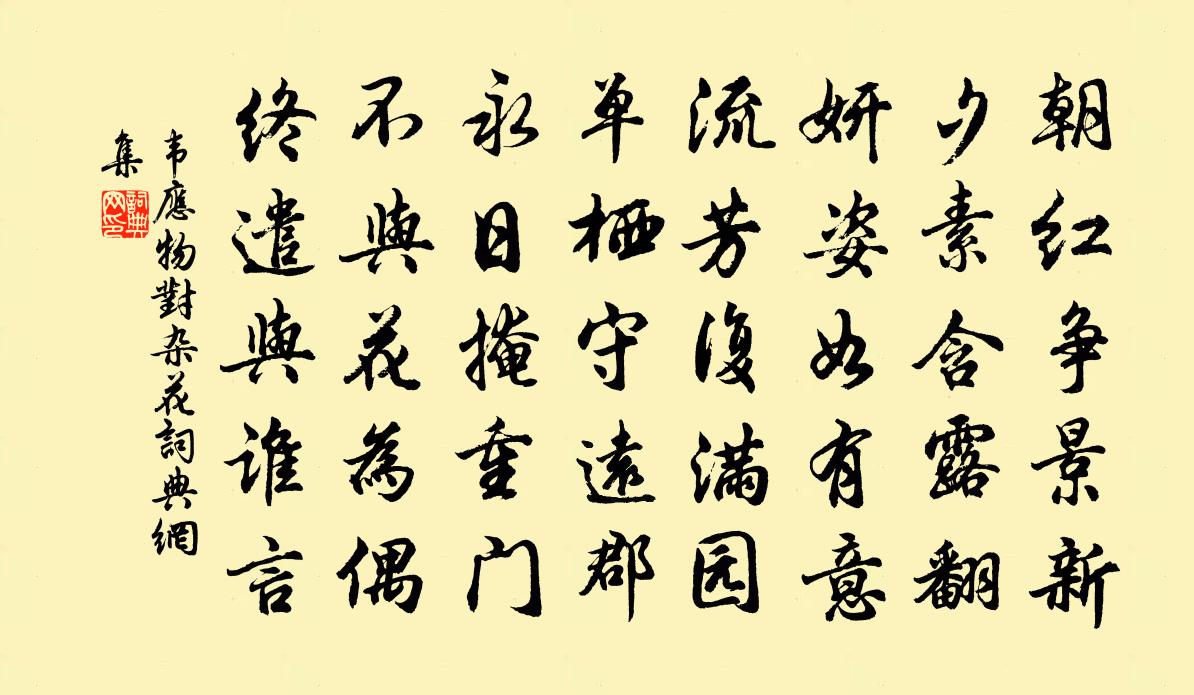 朝红争景新
夕素含露翻
妍姿如有意
流芳復满园
单栖守遠郡
永日掩重门
不與花為偶
终遣與谁言
韦應物對杂花詞典網
集
詞典
网印